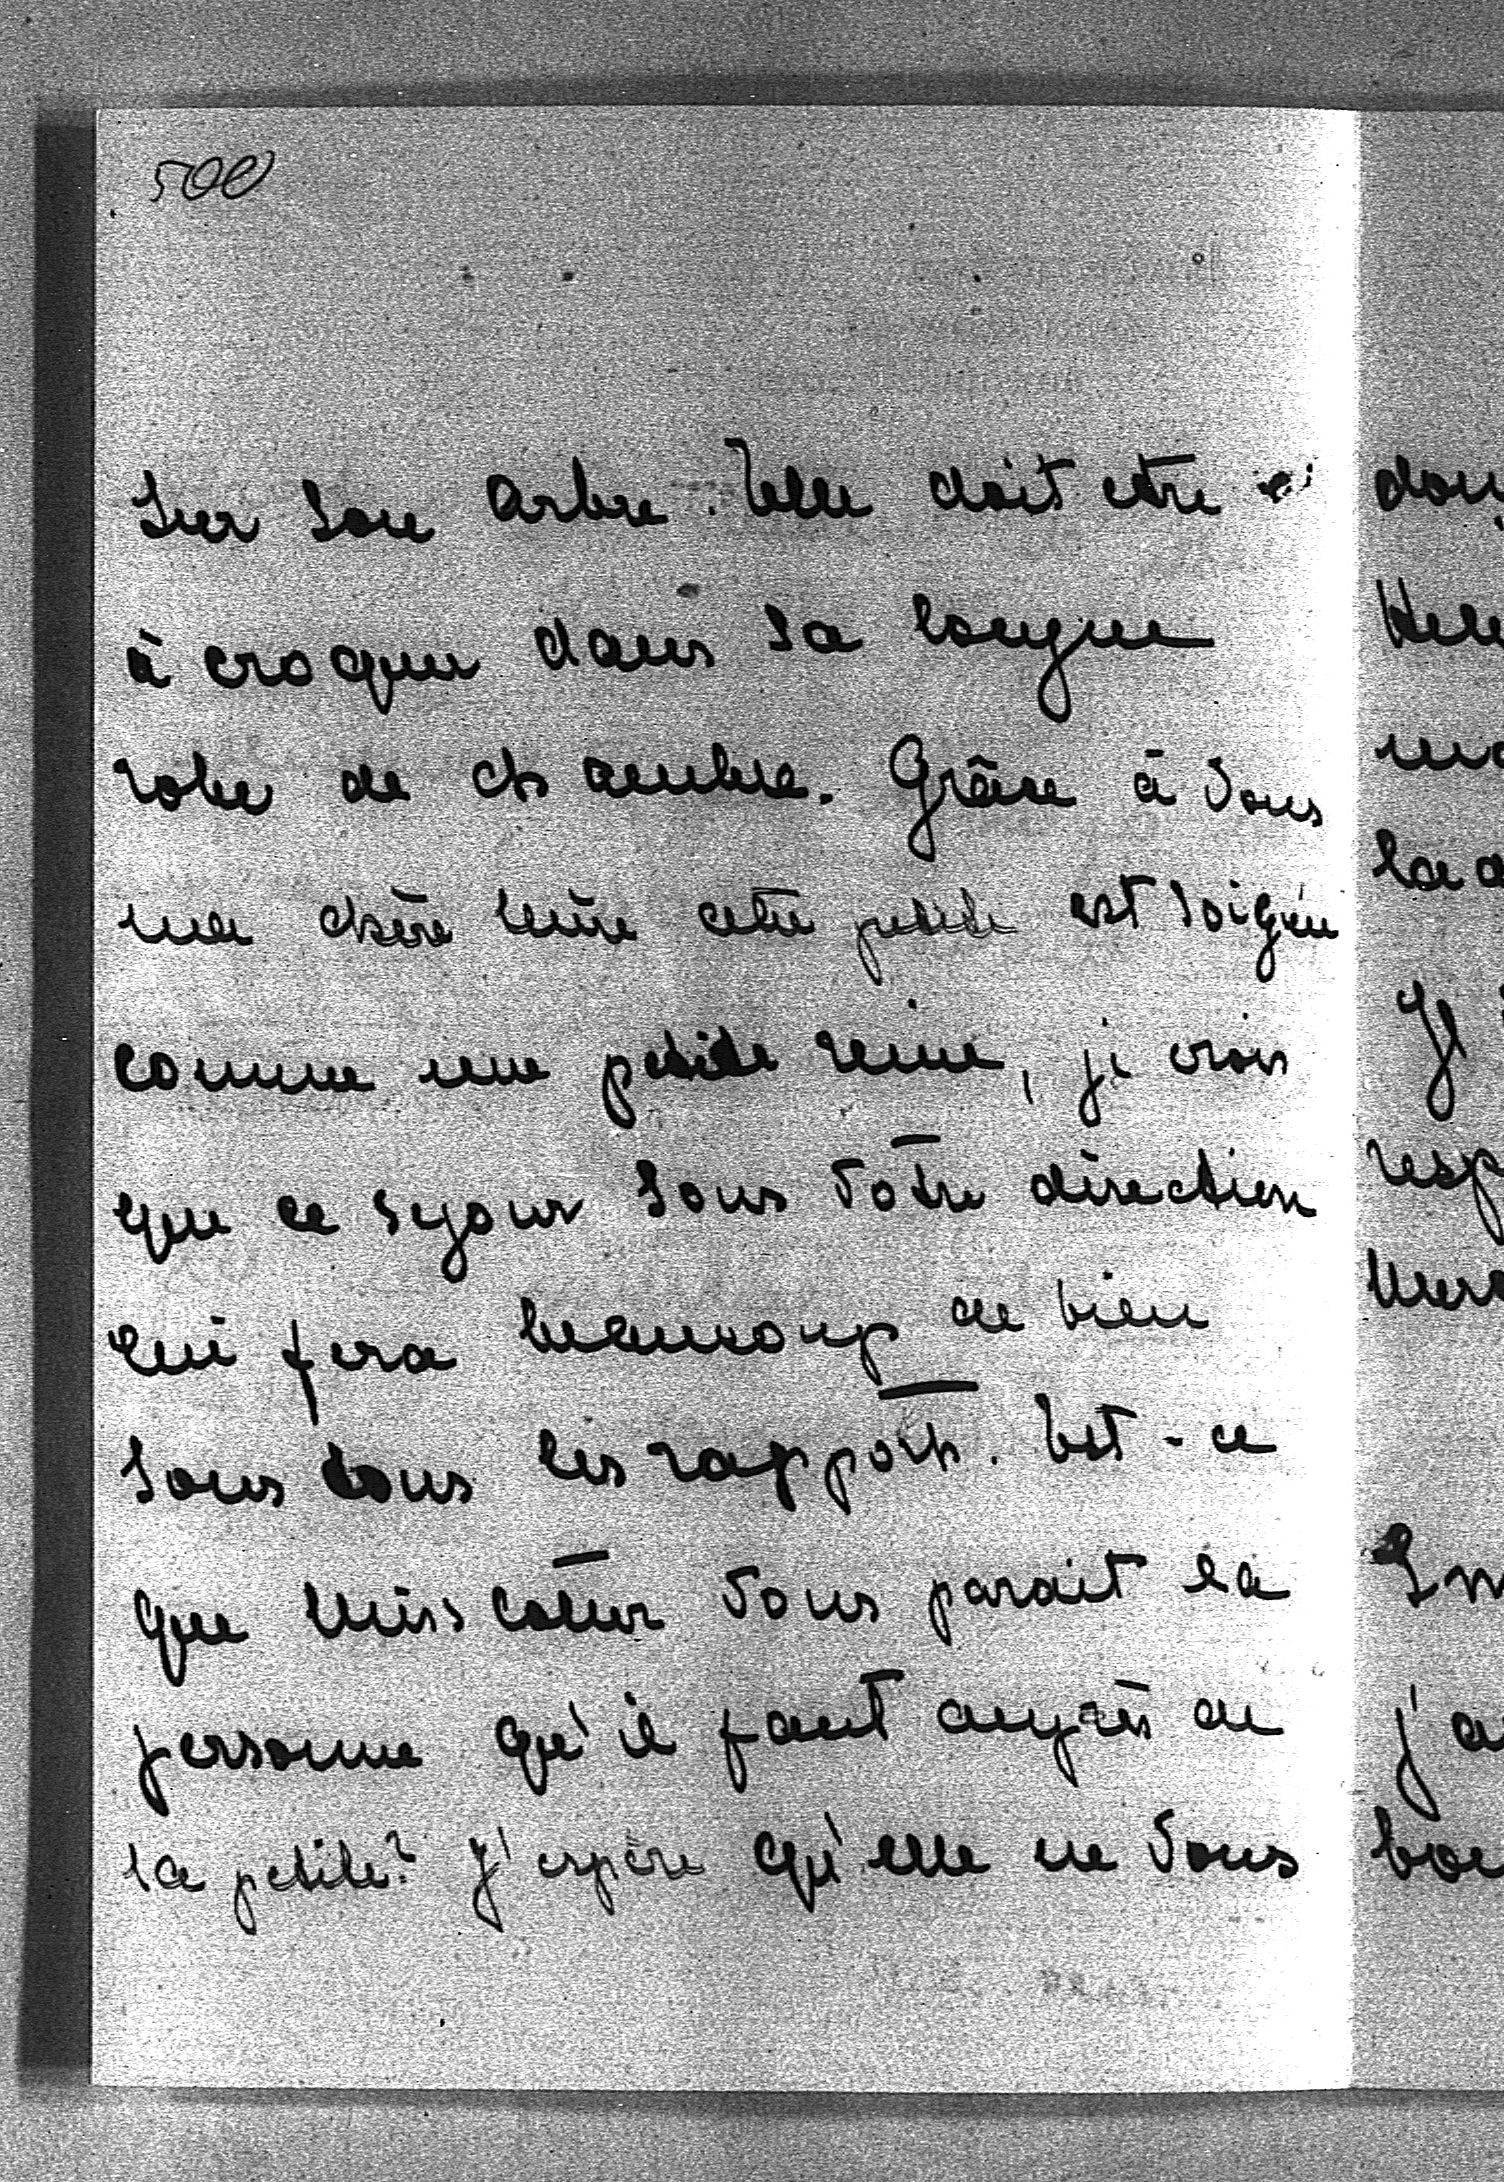 500
sur son arbre. Elle doit etre
à croquer dans sa longue
robe de chambre. Grâce à Vous
ma chère Mère cette petite est soignée
comme une petite reine, je crois
que ce sejour sous Vōtre direction
lui fera beaucoup de bien
sous tous les rapports. Est-ce
que Miss Vous parait la
personne qu'il faut auprès de
la petite? J'espère qu'elle ne Vous